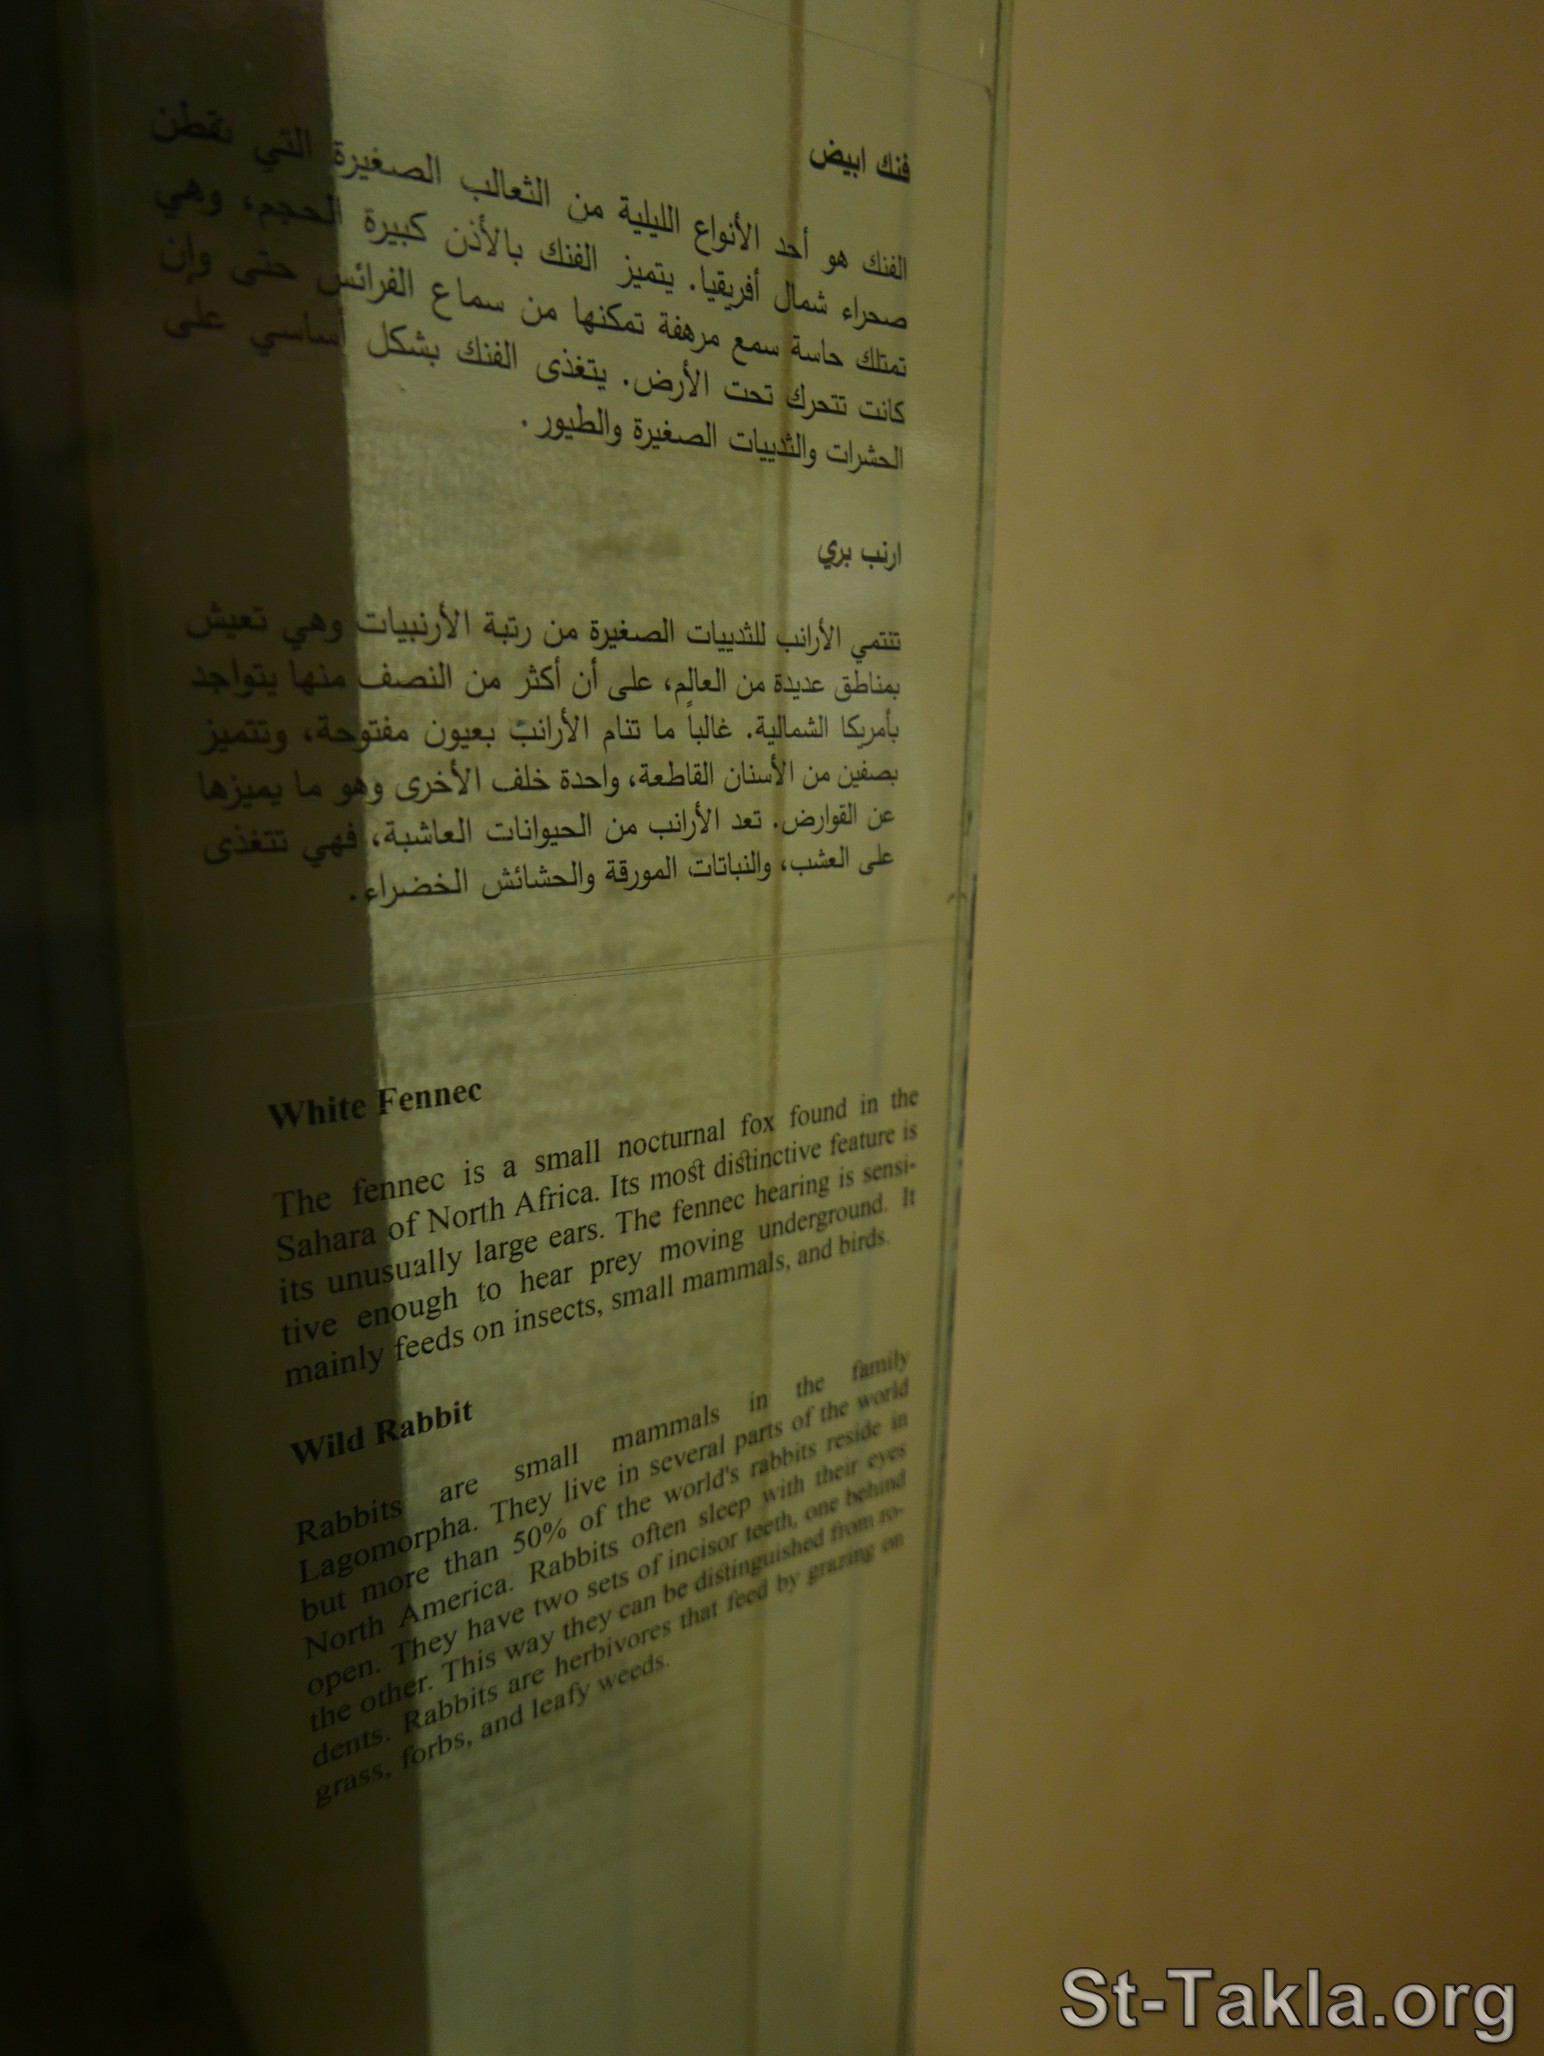 فنك ابيض
الفنك هو أحد الأنواع الليلية من الثعالب الصغيرة التي تقطن
صحراء شمال أفريقيا. يتميز الفنك بالأذن كبيرة الحجم، وهي
تمتلك حاسة سمع مرهفة تمكنها من سماع الفرائس حتى وإن
كانت تتحرك تحت الأرض. يتغذى الفنك بشكل أساسي على
الحشرات والثدييات الصغيرة والطيور.
ارنب بري
تنتمي الأرانب للثدييات الصغيرة من رتبة الأرنبيات وهي تعيش
بمناطق عديدة من العالم، على أن أكثر من النصف منها يتواجد
بأمريكا الشمالية. غالباً ما تنام الأرانب بعيون مفتوحة، وتتميز
بصفين من الأسنان القاطعة، واحدة خلف الأخرى وهو ما يميزها
عن القوارض. تعد الأرانب من الحيوانات العاشبة، فهي تتغذى
على العشب، والنباتات المورقة والحشائش الخضراء.
White Fennec
The fennec is a small nocturnal fox found in the
Sahara of North Africa. Its most distinctive feature is
its unusually large ears. The fennec hearing is sensi-
tive enough to hear prey moving underground. It
mainly feeds on insects, small mammals, and birds.
Wild Rabbit
Rabbits are small mammals in the family
Lagomorpha. They live in several parts of the world
but more than 50% of the world's rabbits reside in
North America. Rabbits often sleep with their eyes
open. They have two sets of incisor teeth, one behind
the other. This way they can be distinguished from ro-
dents. Rabbits are herbivores that feed by grazing on
grass, forbs, and leafy weeds.
St-Takla.org